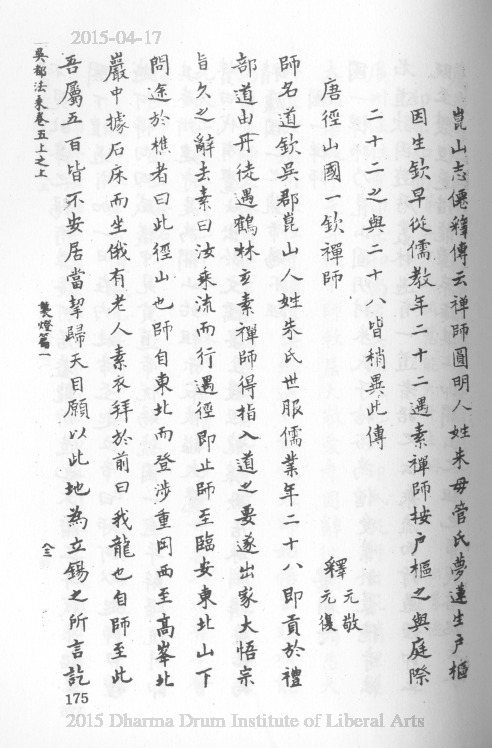 2015-04-17
崑山志僊釋傳云禪師圓明人姓朱母管氏夢蓮生户樞
因生欽早從儒教年二十二遇素禪師按户樞之與庭際
二十二之與二十八皆稍異此傳
唐徑山國一欽禪師
釋元敬
元復
師名道欽吳郡崑山人姓朱氏世服儒業年二十八即貢於禮
部道由丹徒遇鶴林玄素禪師得指入道之要遂出家大悟宗
旨久之辭去素曰汝乘流而行遇徑即止師至臨安東北山下
問途於樵者曰此徑山也師自東北而登涉重岡西至高峯北
巖中據石床而坐俄有老人素衣拜於前曰我龍也自師至此
吾屬五百皆不安居當挈歸天目願以此地為立錫之所言訖
吳都法乘卷五上之上
龔燈篇一
〈三〉
175
2015 Dharma Drum Institute of Liberal Arts